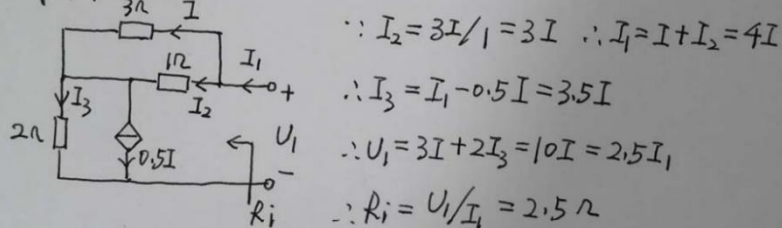 3Ω I
1Ω I₁
I₃ I₂ +
2Ω 0.5I U₁
−
Ri
∵ I₂ = 3I/1 = 3I ∴ I₁ = I + I₂ = 4I
∴ I₃ = I₁ − 0.5I = 3.5I
∴ U₁ = 3I + 2I₃ = 10I = 2.5I₁
∴ Ri = U₁/I₁ = 2.5Ω